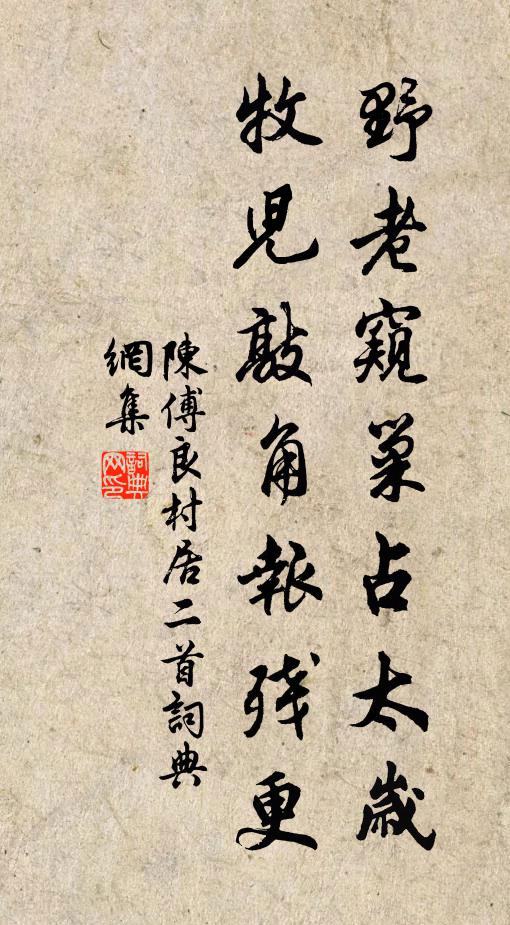 野老窺巢占太歲
牧兒敲角報殘更
陳傅良村居二首詞典
網集
詞典
网印